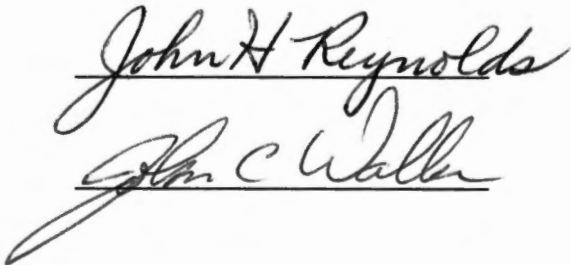 John H Reynolds
John C Waller